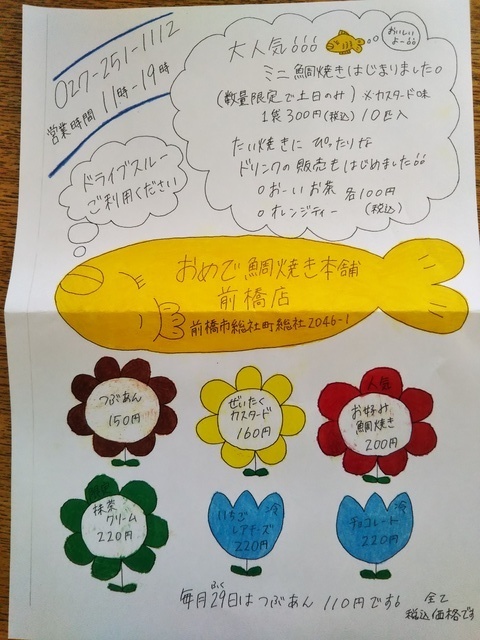 027-251-1112
営業時間 11時-19時
おいしい
よー
大人気
ミニ鯛焼きはじまりました。
(数量限定で土日のみ) ※カスタード味
1袋300円(税込) 10匹入
たい焼きにぴったりな
ドリンクの販売もはじめました
○お〜いお茶 各100円
○オレンジティー (税込)
ドライブスルー
ご利用ください
おめで鯛焼き本舗
前橋店
前橋市総社町総社2046-1
つぶあん
150円
ぜいたく
カスタード
160円
人気
お好み
鯛焼き
200円
抹茶
クリーム
220円
いちご 冷
レアチーズ
220円
冷
チョコレート
220円
ふく
毎月29日はつぶあん 110円です
全て
税込価格です